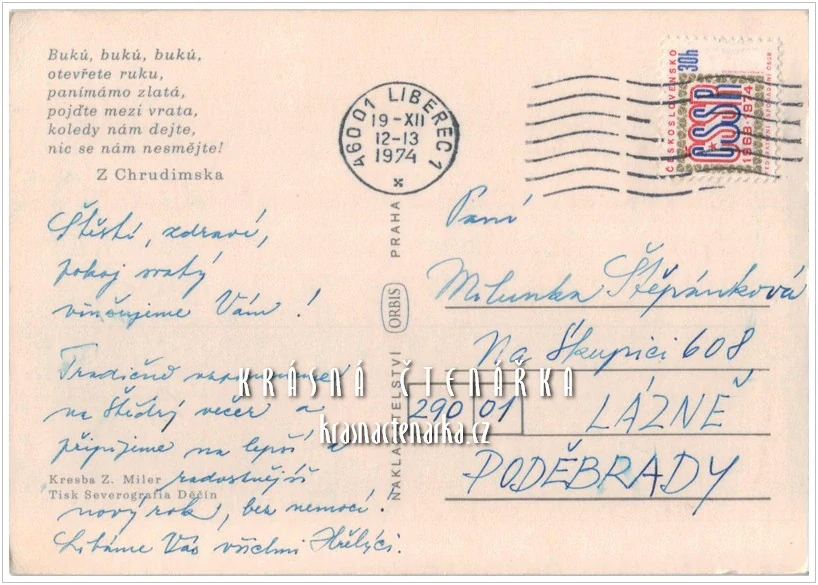 Bukú, bukú, bukú,
otevřete ruku,
panímámo zlatá,
pojďte mezi vrata,
koledy nám dejte,
nic se nám nesmějte!
Z Chrudimska
460 01 LIBEREC 1
19-XII
12-13
1974
ČESKOSLOVENSKO
30h
ČSSR
1969-1974
Štěstí, zdraví,
pokoj svatý
vinšujeme Vám!
Tradičně
na Štědrý večer a
připijeme na lepší a
radostnější
nový rok, bez nemocí!
Líbáme Vás všichni
Kresba Z. Miler
Tisk Severografia Děčín
NAKLADATELSTVÍ ORBIS PRAHA
Paní
Milunka Štěpánková
Na Škupici 608
290 01 LÁZNĚ
PODĚBRADY
KRÁSNÁ ČTENÁRKA
krasnactenarka.cz